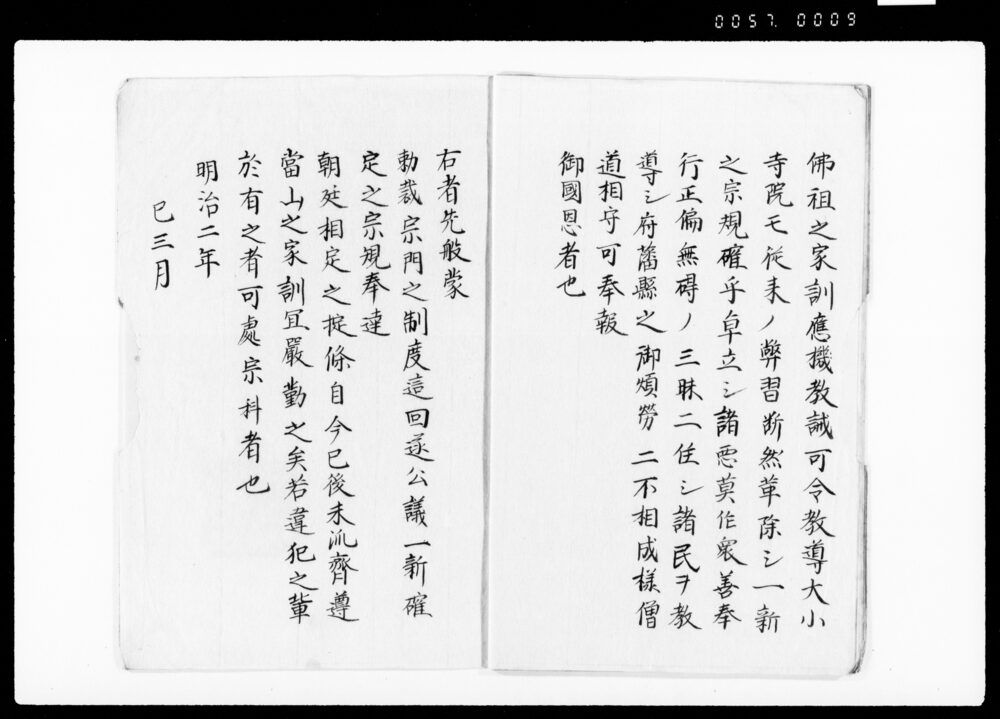 0057 0009
佛祖之家訓應機教誡可令教導大小
寺院モ從来ノ弊習断然革除シ一新
之宗規確乎卓立シ諸悪莫作衆善奉
行正偏無碍ノ三昧二住シ諸民ヲ教
導シ府藩縣之御煩勞二不相成様僧
道相守可奉報
御國恩者也
右者先般蒙
勅裁宗門之制度這回遂公議一新確
定之宗規奉達
朝廷相定之掟條自今已後末派齊遵
當山之家訓冝嚴勤之矣若違犯之輩
於有之者可處宗科者也
明治二年
巳三月